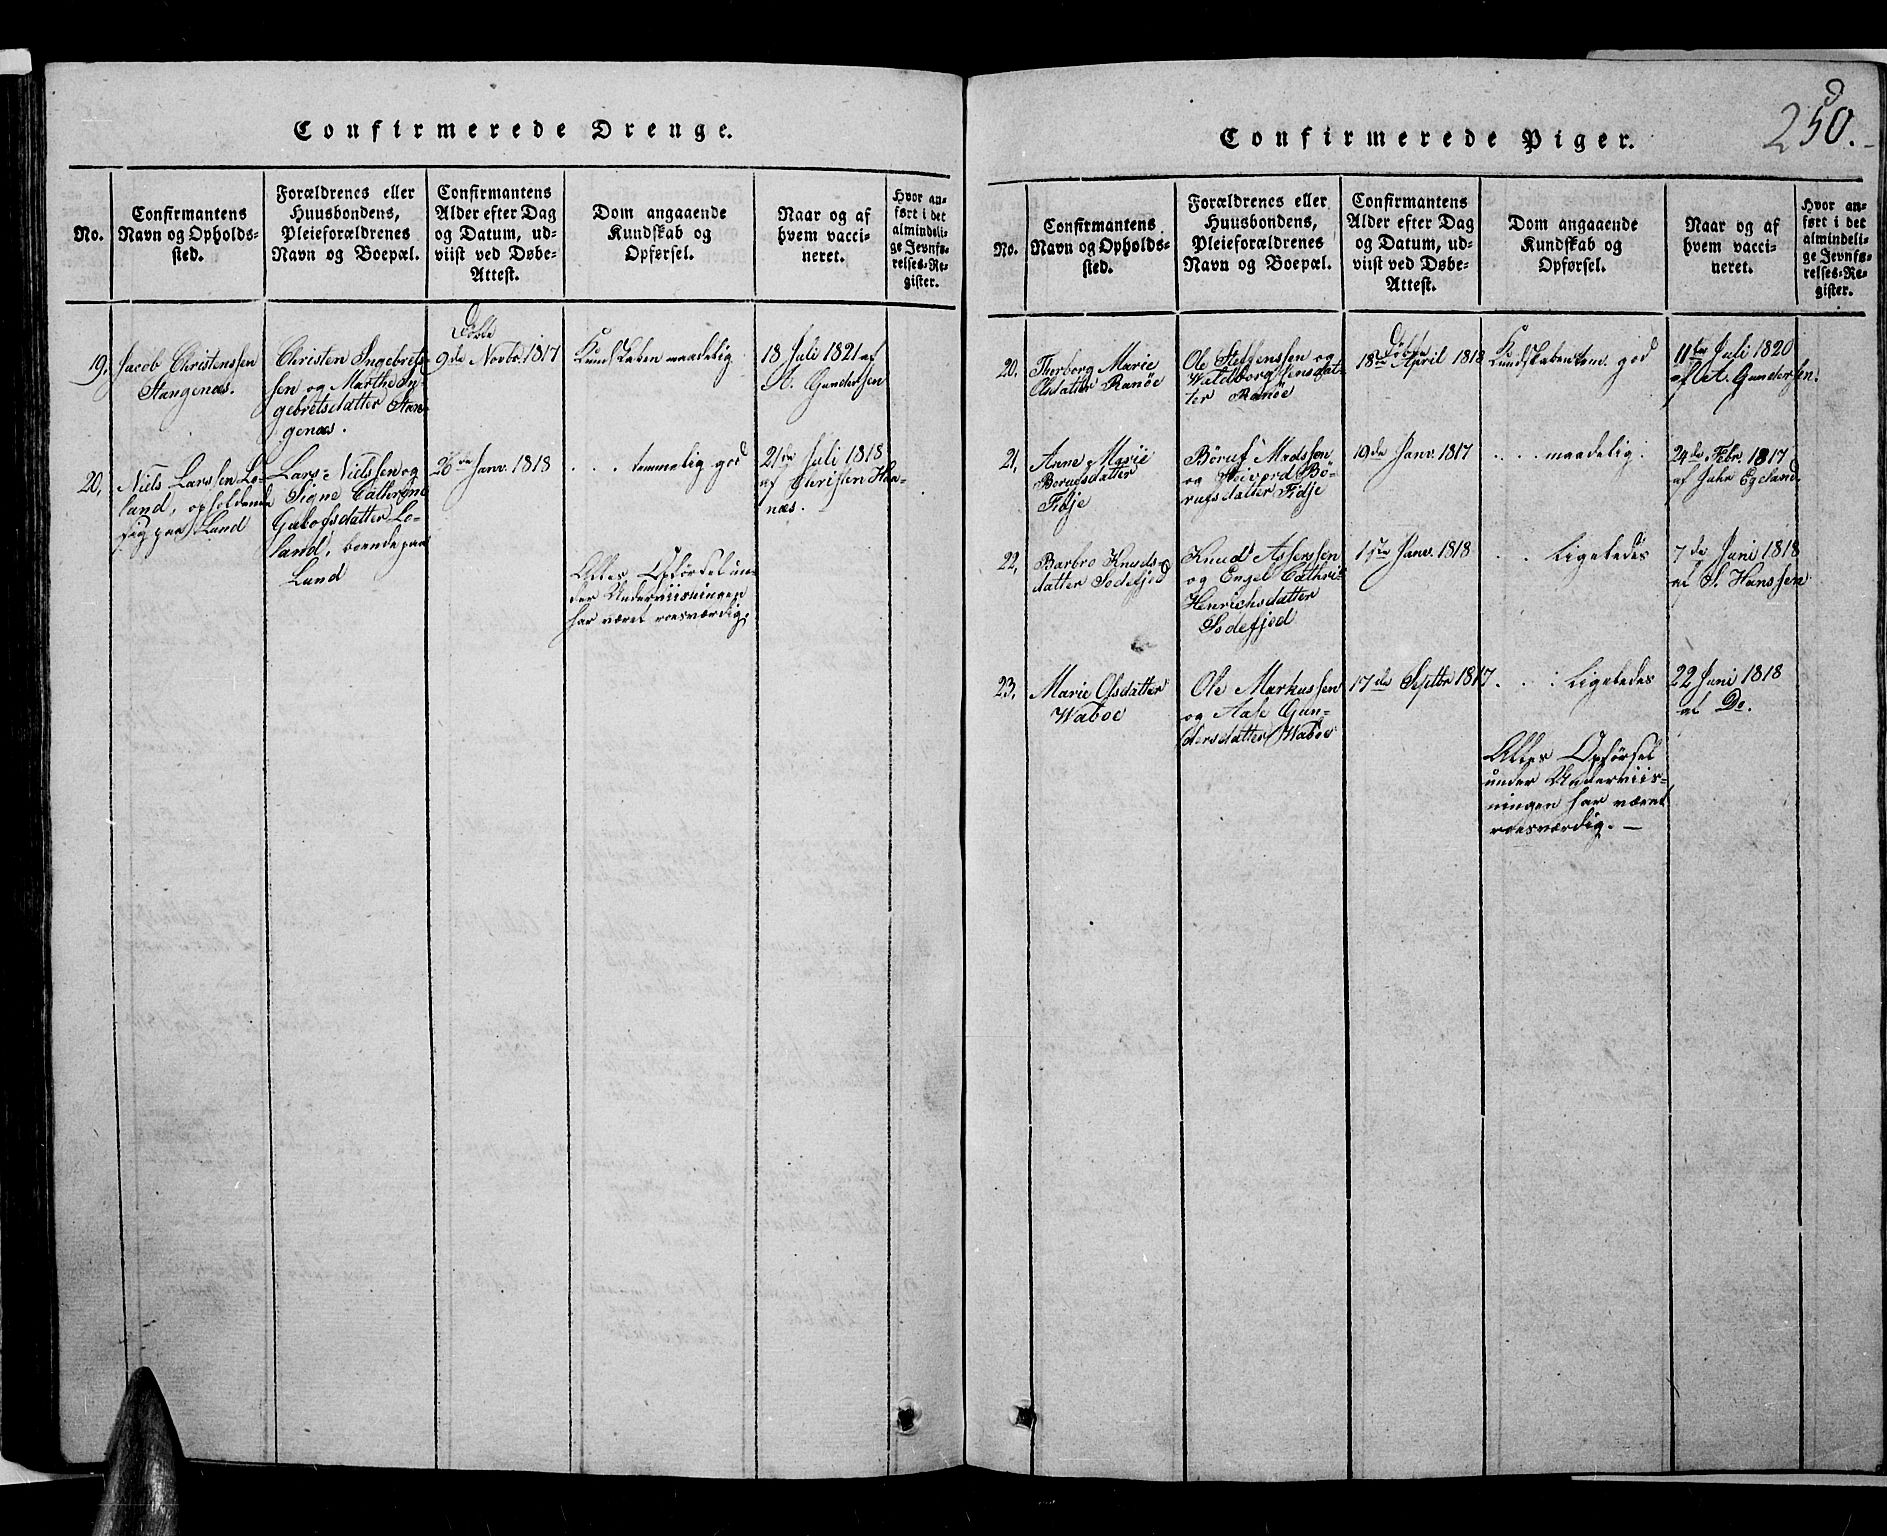 Confirmerede Drenge.
No.
Confirmantens
Navn og Opholds-
sted.
Forældrenes eller
Huusbondens,
Pleieforældrenes
Navn og Boepæl.
Confirmantens
Alder efter Dag
og Datum, ud-
viist ved Døbe-
Attest.
Dom angaaende
Kundskab og
Opførsel.
Naar og af
hvem vacci-
neret.
Hvor an-
ført i det
almindeli-
ge Jevnfø-
relses-Re-
gister.
19,
Jacob Christenssen
Stangenæs.
Christen Ingebrets-
sen og Marthe In-
gebretsdatter Stan-
genæs.
Døbte
9de Novbr 1817
Kundskaben maadelig
18 Juli 1821 af
A. Gundersen
20,
Niels Larssen Lo-
land, opholdende
sig paa Land
Lars Nielssen og
Signe Cathrine
Jakobsdatter Lo-
land, boende paa
Land
26de Janv. 1818
. . . temmelig god
21de Juli 1818
af Christen Haa-
næs.
Alles Opførsel un-
der Underviisningen
har været roesværdig.
Confirmerede Piger.
250.
No.
Confirmantens
Navn og Opholds-
sted.
Forældrenes eller
Huusbondens,
Pleieforældrenes
Navn og Boepæl.
Confirmantens
Alder efter Dag
og Datum, ud-
viist ved Døbe-
Attest.
Dom angaaende
Kundskab og
Opførsel.
Naar og af
hvem vacci-
neret.
Hvor an-
ført i det
almindeli-
ge Jevnfø-
relses-Re-
gister.
20.
Thorborg Marie
Olsdatter Ranöe
Ole Steffenssen og
Waldborg Jensdat-
ter Ranöe
Døbte
18de April 1818
Kundskaben tem. god
11te Juli 1820
af A. Gundersen.
21,
Anne Marie
Borufsdatter
Fidje
Böruf Madssen
og Sivord Bö-
rufsdatter Fidje
19de Janv. 1817
. . . . maadelig.
24de Febr. 1817
af Jahr Egeland
22,
Barbro Knuds-
datter Sodefjed
Knud Asserssen
og Engel Cathri-
Henrichsdatter
Sodefjed
1ste Janv. 1818
. . . Ligeledes
7de Juni 1818
af S. Hanssen
23,
Marie Olsdatter
Waboe
Ole Markussen
og Aase Gun-
dersdatter Waboe
17de Septbr 1817
. . . Ligeledes
22 Juni 1818
af Do.
Alles Opførsel
under Underviis-
ningen har været
roesværdig. —